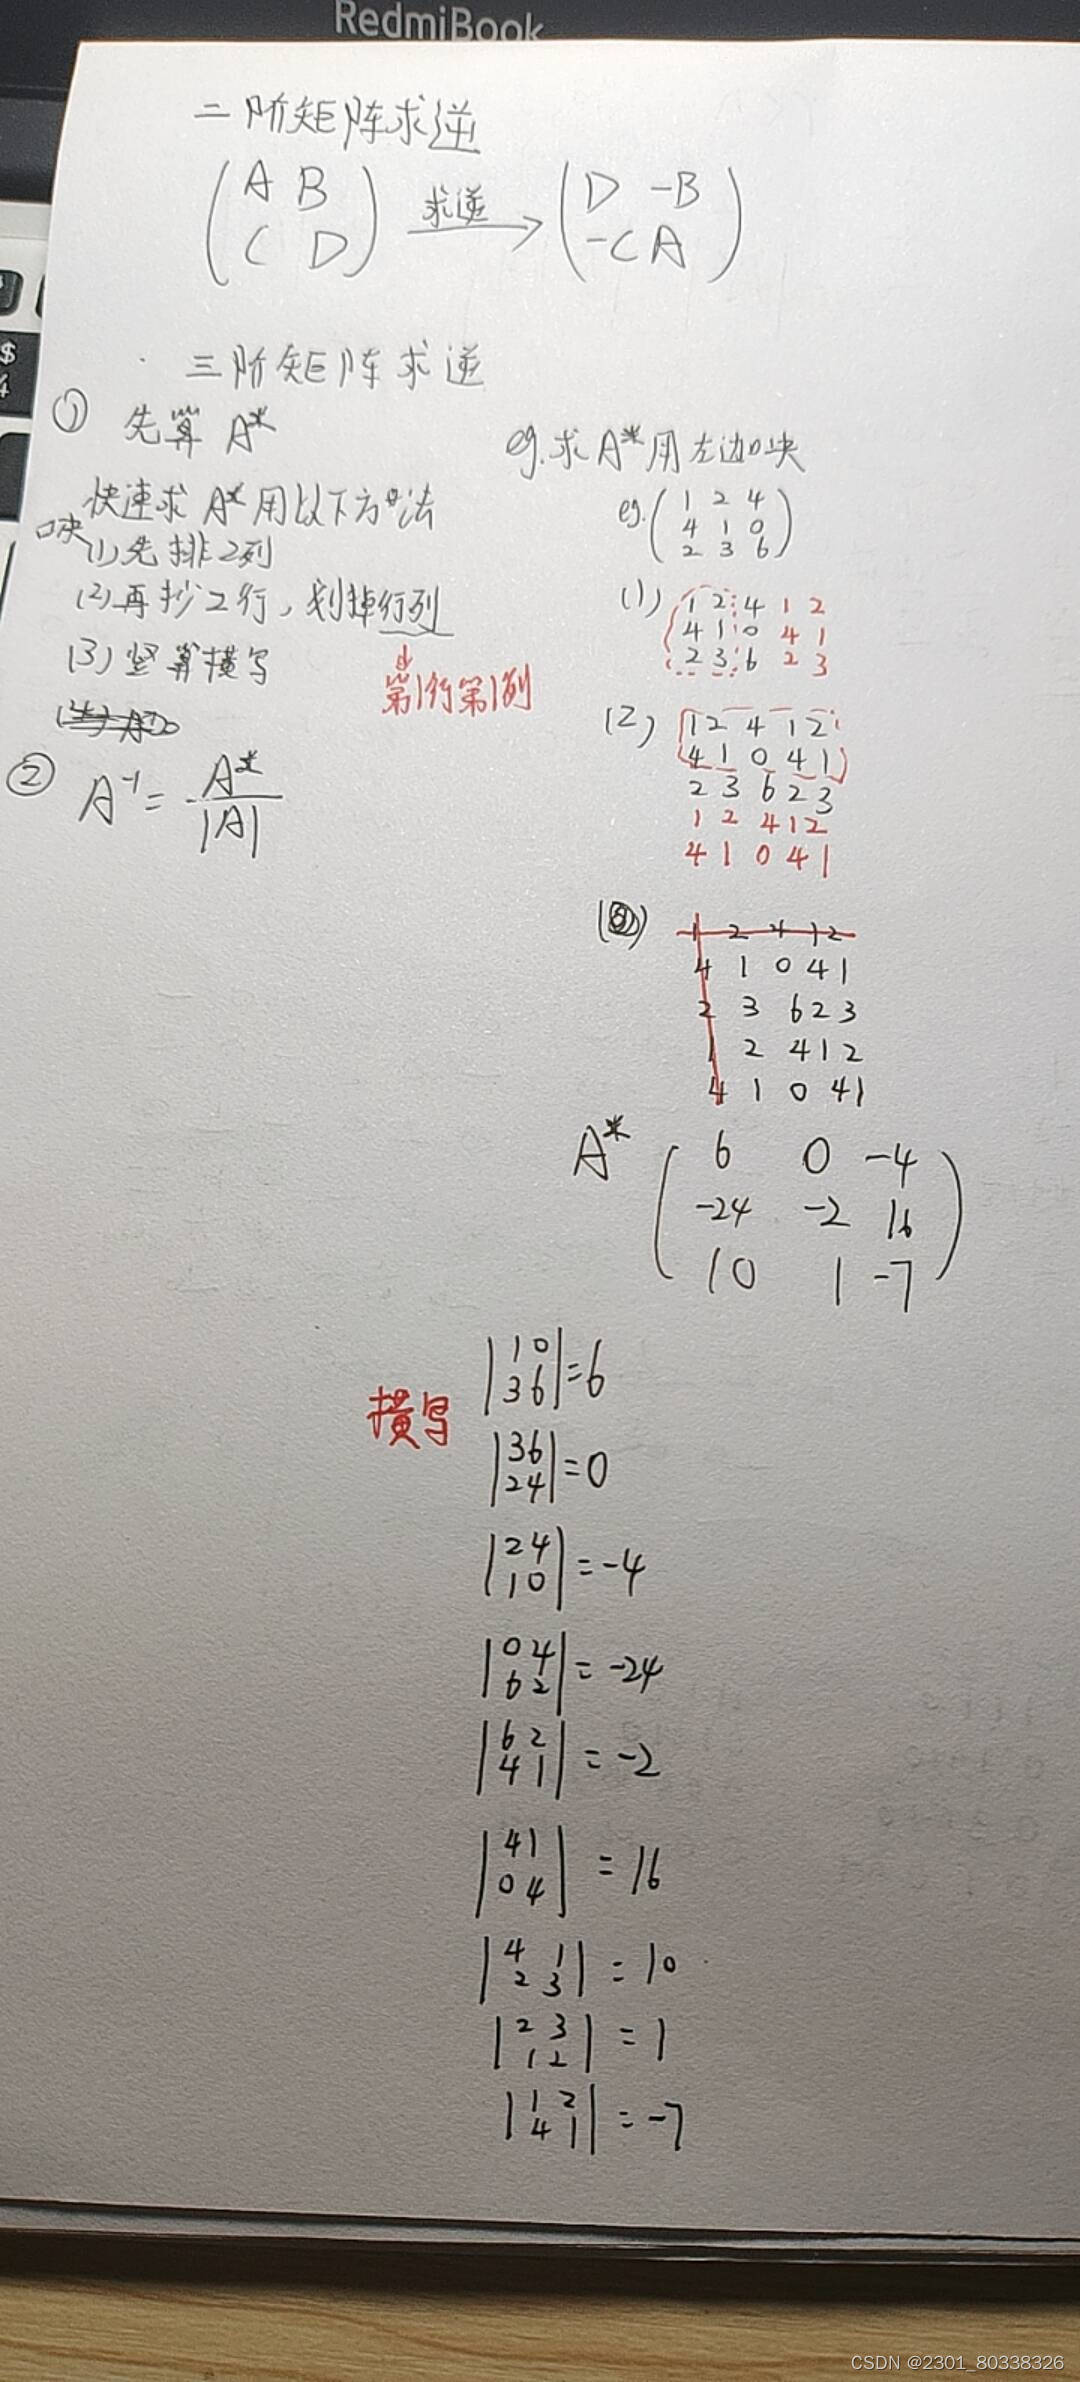 RedmiBook
二阶矩阵求逆
A B 求逆 D -B
C D -C A
三阶矩阵求逆
① 先算 A*
快速求 A* 用以下方法
口诀
(1) 先排2列
(2) 再抄2行，划掉行列
第1行第1列
(3) 竖算横写
② A⁻¹ = A* / |A|
eg. 求A*用左边口诀
eg. 1 2 4
4 1 0
2 3 6
(1) 1 2 4 1 2
4 1 0 4 1
2 3 6 2 3
(2) 1 2 4 1 2
4 1 0 4 1
2 3 6 2 3
1 2 4 1 2
4 1 0 4 1
(3) 1 2 4 1 2
4 1 0 4 1
2 3 6 2 3
1 2 4 1 2
4 1 0 4 1
A* 6 0 -4
-24 -2 16
10 1 -7
横写
|1 0
3 6| = 6
|3 6
2 4| = 0
|2 4
1 0| = -4
|0 4
6 2| = -24
|6 2
4 1| = -2
|4 1
0 4| = 16
|4 1
2 3| = 10
|2 3
1 2| = 1
|1 2
4 1| = -7
$
4
CSDN @2301_80338326